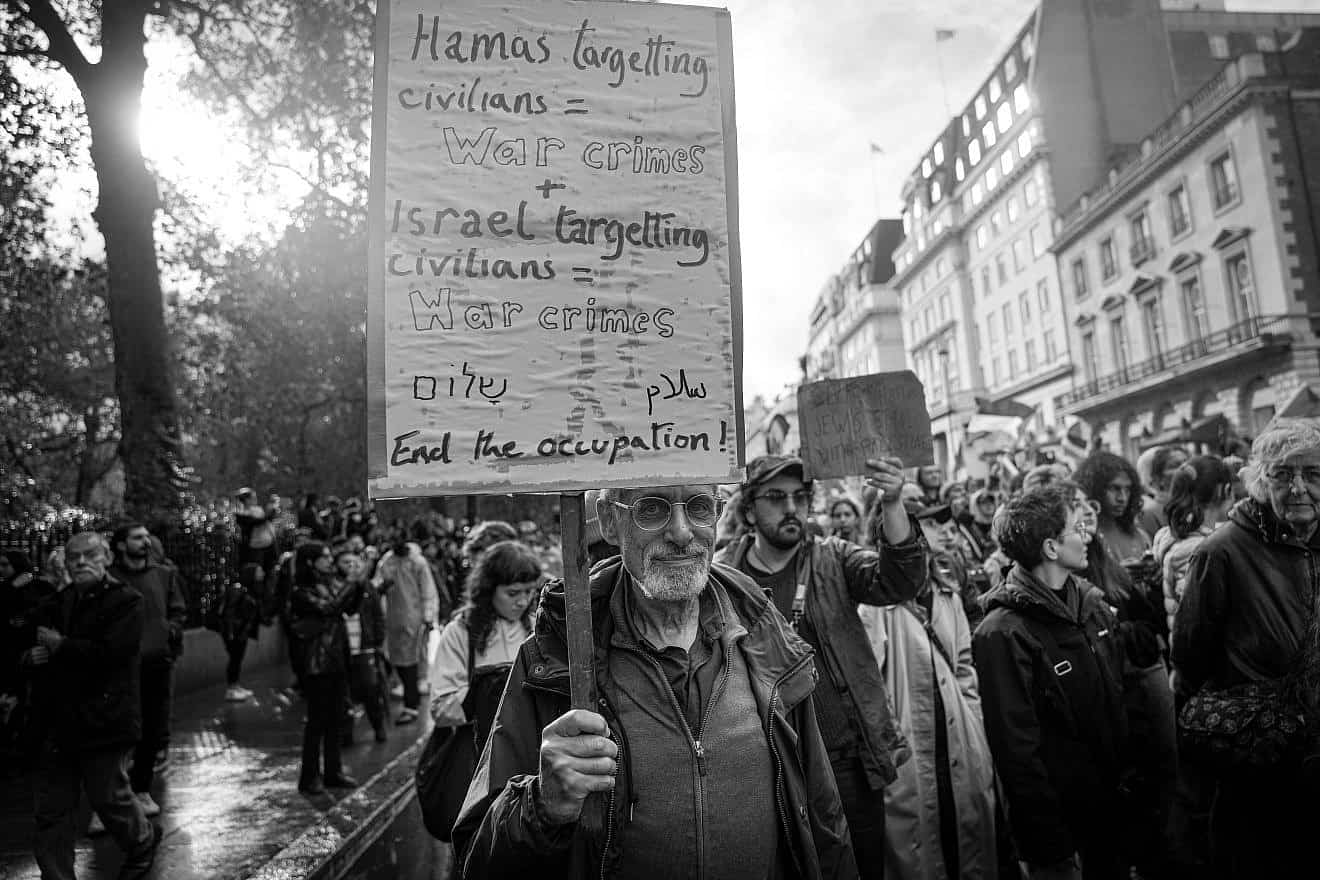 Hamas targetting
civilians =
War crimes
+
Israel targetting
civilians =
War crimes
שָלום سلام
End the occupation!
JEWISH